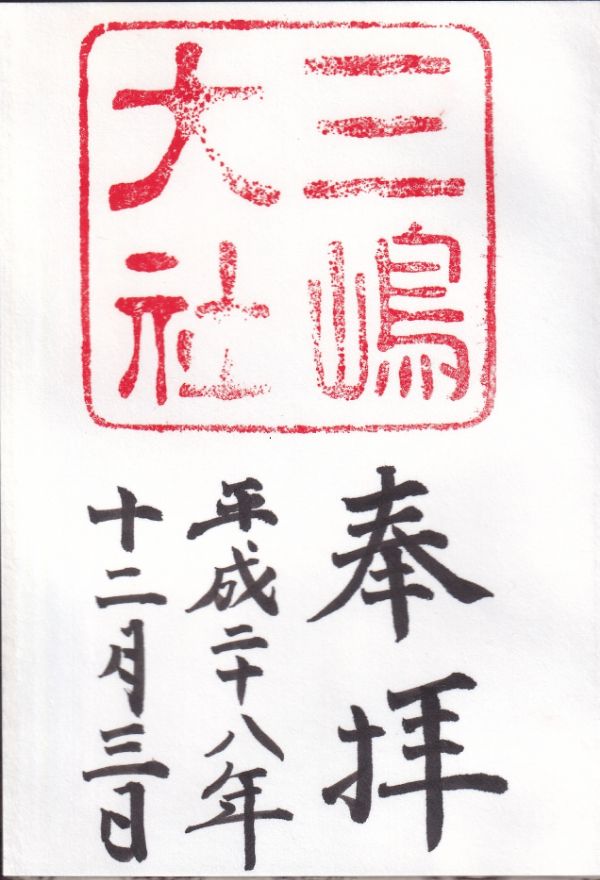 三嶋
大社
奉拝
平成二十八年
十二月三日